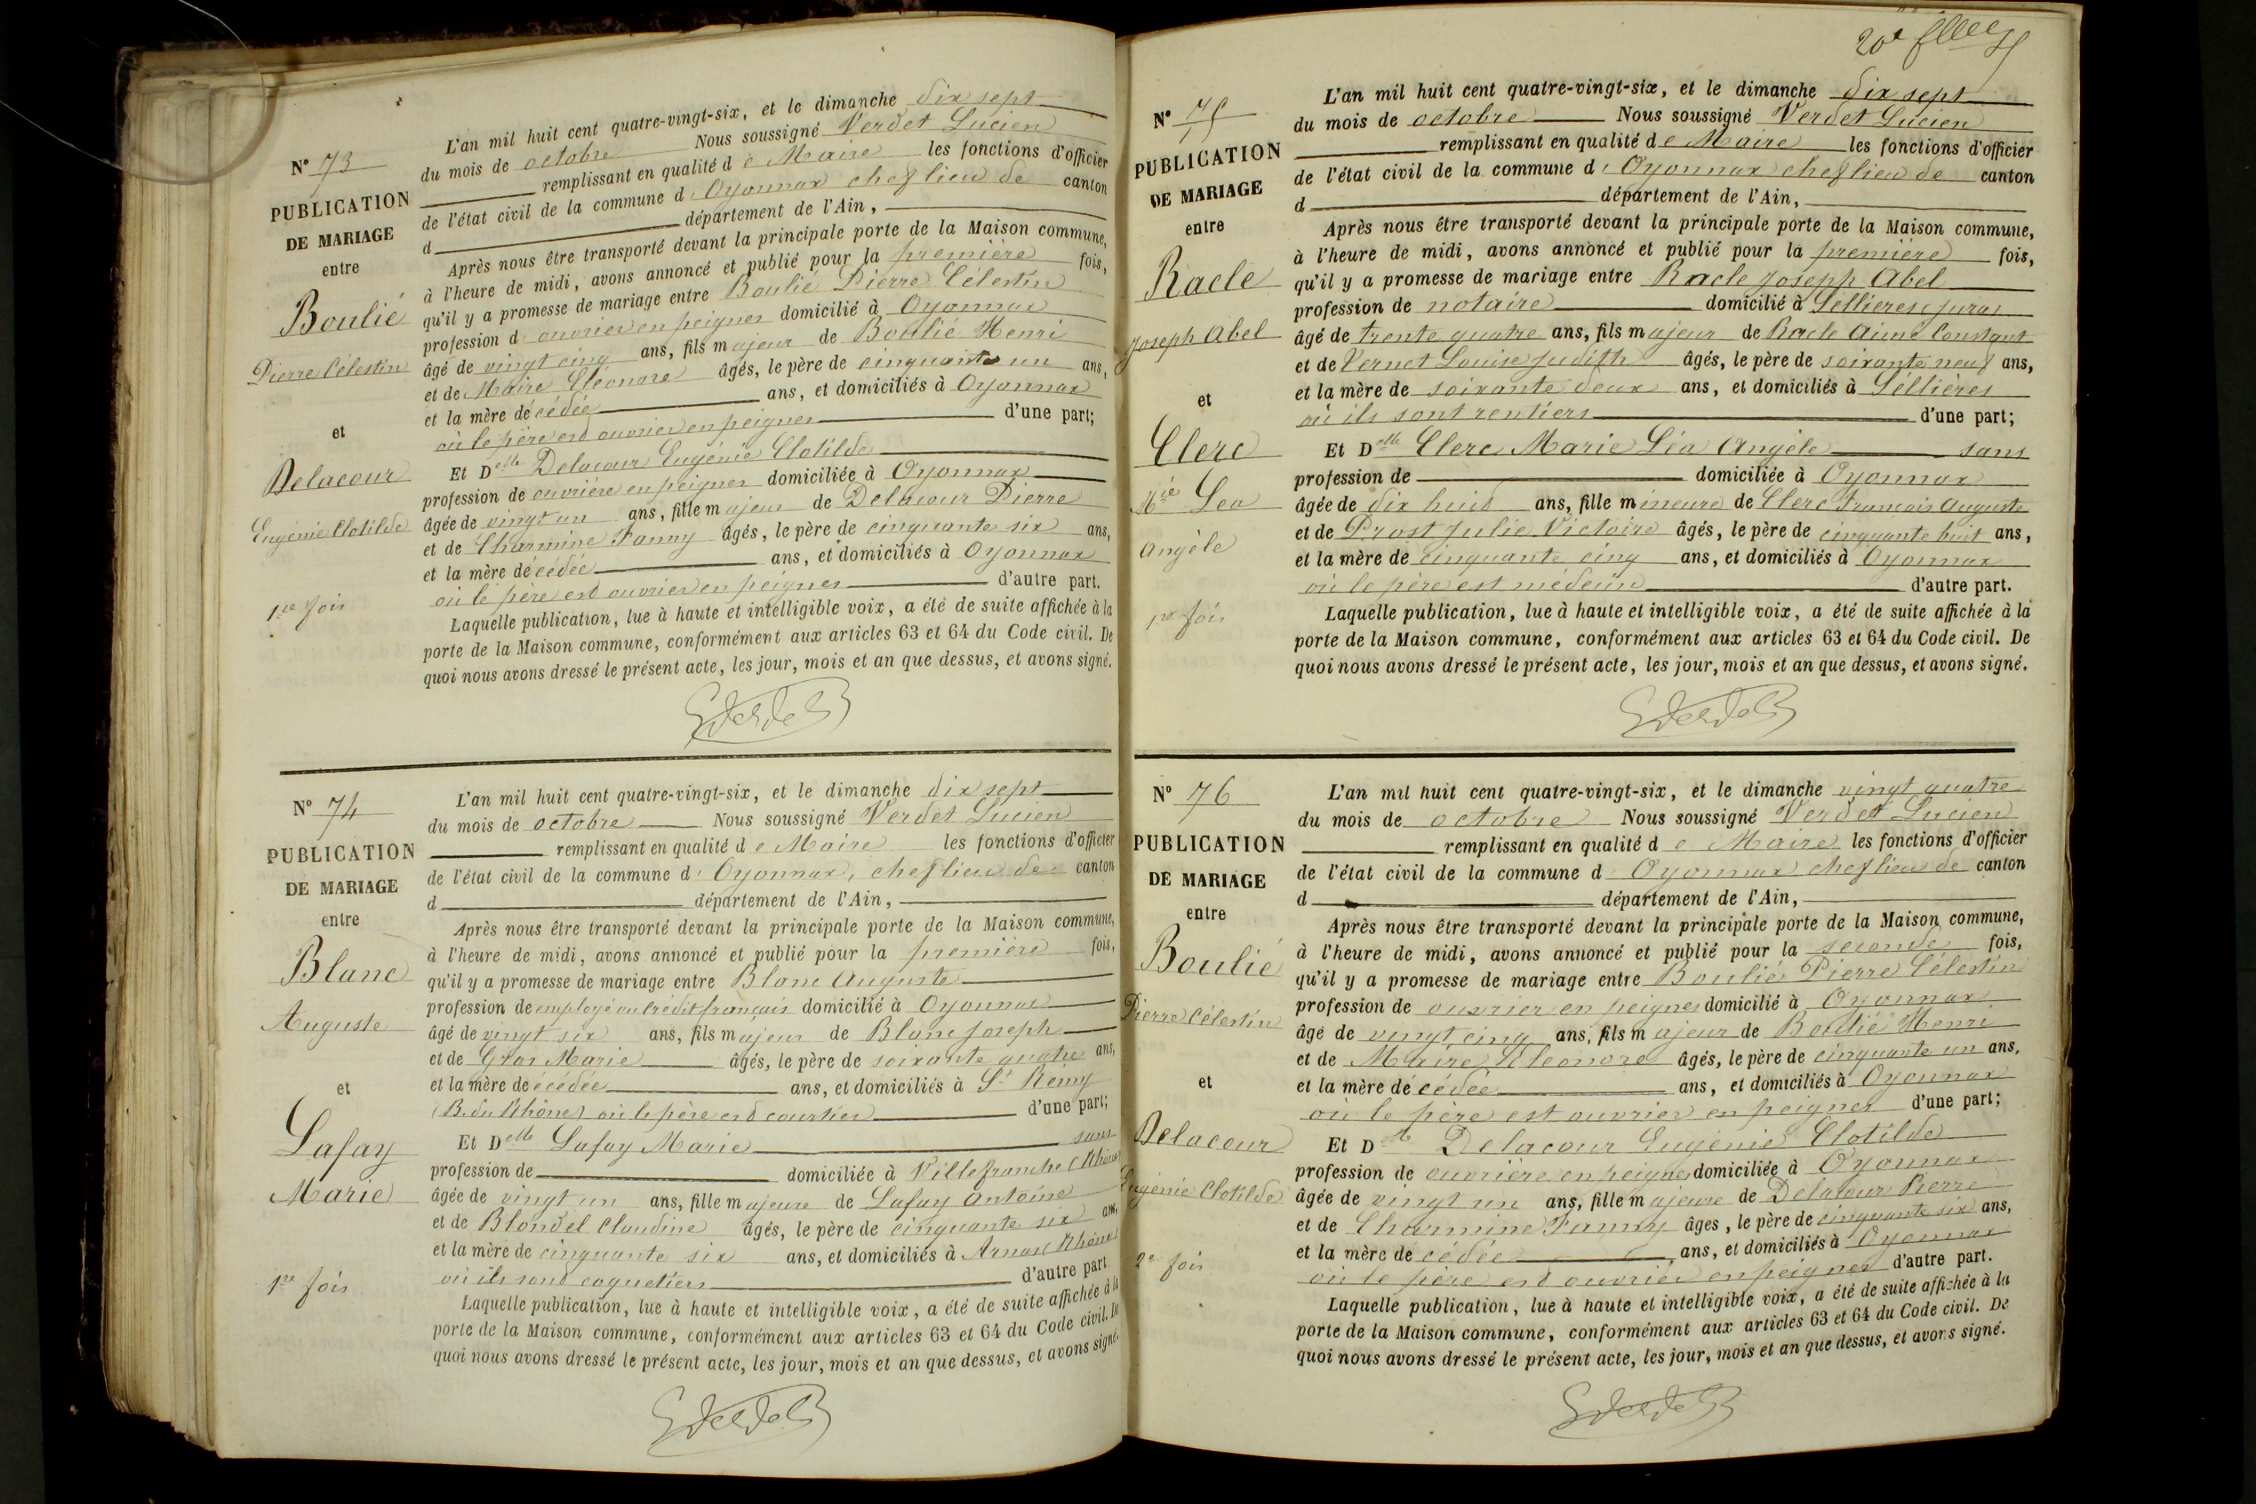 N° 73
PUBLICATION
DE MARIAGE
entre
Boulié
Pierre Célestin
et
Delacour
Eugénie Clotilde
1re fois
L'an mil huit cent quatre-vingt-six, et le dimanche dix sept
du mois de octobre Nous soussigné Verdet Lucien
remplissant en qualité de Maire les fonctions d'officier
de l'état civil de la commune d'Oyonnax chef lieu de canton
d département de l'Ain,
Après nous être transporté devant la principale porte de la Maison commune,
à l'heure de midi, avons annoncé et publié pour la première fois,
qu'il y a promesse de mariage entre Boulié Pierre Célestin
profession d'ouvrier en peignes domicilié à Oyonnax
âgé de vingt cinq ans, fils majeur de Boulié Henri
et de Maire Eléonore âgés, le père de cinquante un ans,
et la mère décédée ans, et domiciliés à Oyonnax
où le père est ouvrier en peignes d'une part;
Et Delle Delacour Eugénie Clotilde
profession de ouvrière en peignes domiciliée à Oyonnax
âgée de vingt un ans, fille majeur de Delacour Pierre
et de Charmine Fanny âgés, le père de cinquante six ans,
et la mère décédée ans, et domiciliés à Oyonnax
où le père est ouvrier en peignes d'autre part.
Laquelle publication, lue à haute et intelligible voix, a été de suite affichée à la
porte de la Maison commune, conformément aux articles 63 et 64 du Code civil. De
quoi nous avons dressé le présent acte, les jour, mois et an que dessus, et avons signé.
N° 74
PUBLICATION
DE MARIAGE
entre
Blanc
Auguste
et
Lafay
Marie
1re fois
L'an mil huit cent quatre-vingt-six, et le dimanche dix sept
du mois de octobre Nous soussigné Verdet Lucien
remplissant en qualité de Maire les fonctions d'officier
de l'état civil de la commune d'Oyonnax, chef lieu de canton
d département de l'Ain,
Après nous être transporté devant la principale porte de la Maison commune,
à l'heure de midi, avons annoncé et publié pour la première fois,
qu'il y a promesse de mariage entre Blanc Auguste
profession de employé au crédit français domicilié à Oyonnax
âgé de vingt six ans, fils majeur de Blanc Joseph
et de Gros Marie âgés, le père de soixante quatre ans,
et la mère de écédée ans, et domiciliés à St Rémy
(B. du Rhône) où le père est courtier d'une part;
Et Delle Lafay Marie sans
profession de domiciliée à Villefranche (Rhône)
âgée de vingt un ans, fille majeure de Lafay Antoine
et de Blondel Claudine âgés, le père de cinquante six ans,
et la mère de cinquante six ans, et domiciliés à Arnas (Rhône)
où ils sont coquetiers d'autre part
Laquelle publication, lue à haute et intelligible voix, a été de suite affichée à la
porte de la Maison commune, conformément aux articles 63 et 64 du Code civil. De
quoi nous avons dressé le présent acte, les jour, mois et an que dessus, et avons signé.
20e
N° 75
PUBLICATION
DE MARIAGE
entre
Racle
Joseph Abel
et
Clerc
Mie Léa
Angèle
1re fois
L'an mil huit cent quatre-vingt-six, et le dimanche dix sept
du mois de octobre Nous soussigné Verdet Lucien
remplissant en qualité de Maire les fonctions d'officier
de l'état civil de la commune d'Oyonnax chef lieu de canton
d département de l'Ain,
Après nous être transporté devant la principale porte de la Maison commune,
à l'heure de midi, avons annoncé et publié pour la première fois,
qu'il y a promesse de mariage entre Racle Joseph Abel
profession de notaire domicilié à Sellieres jura
âgé de trente quatre ans, fils majeur de Racle Aimé Constant
et de Vernet Louise Judith âgés, le père de soixante neuf ans,
et la mère de soixante deux ans, et domiciliés à Sellières
où ils sont rentiers d'une part;
Et Delle Clerc Marie Léa Angèle sans
profession de domiciliée à Oyonnax
âgée de dix huit ans, fille mineure de Clerc François Auguste
et de Prost Julie Victoire âgés, le père de cinquante huit ans,
et la mère de cinquante cinq ans, et domiciliés à Oyonnax
où le père est médecin d'autre part.
Laquelle publication, lue à haute et intelligible voix, a été de suite affichée à la
porte de la Maison commune, conformément aux articles 63 et 64 du Code civil. De
quoi nous avons dressé le présent acte, les jour, mois et an que dessus, et avons signé.
N° 76
PUBLICATION
DE MARIAGE
entre
Boulié
Pierre Célestin
et
Delacour
Eugénie Clotilde
2e fois
L'an mil huit cent quatre-vingt-six, et le dimanche vingt quatre
du mois de octobre Nous soussigné Verdet Lucien
remplissant en qualité de Maire les fonctions d'officier
de l'état civil de la commune d'Oyonnax chef lieu de canton
d département de l'Ain,
Après nous être transporté devant la principale porte de la Maison commune,
à l'heure de midi, avons annoncé et publié pour la seconde fois,
qu'il y a promesse de mariage entre Boulié Pierre Célestin
profession de ouvrier en peignes domicilié à Oyonnax
âgé de vingt cinq ans, fils majeur de Boulié Henri
et de Maire Eléonore âgés, le père de cinquante un ans,
et la mère décédée ans, et domiciliés à Oyonnax
où le père est ouvrier en peignes d'une part;
Et Delle Delacour Eugénie Clotilde
profession de ouvrière en peignes domiciliée à Oyonnax
âgée de vingt un ans, fille majeure de Delacour Pierre
et de Charmine Fanny âgés, le père de cinquante six ans,
et la mère de cédée ans, et domiciliés à Oyonnax
où le père est ouvrier en peignes d'autre part.
Laquelle publication, lue à haute et intelligible voix, a été de suite affichée à la
porte de la Maison commune, conformément aux articles 63 et 64 du Code civil. De
quoi nous avons dressé le présent acte, les jour, mois et an que dessus, et avons signé.